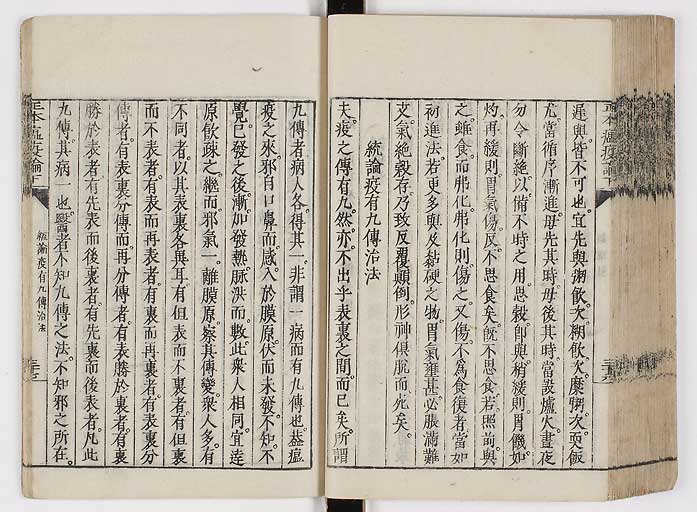 遲與皆不可也。宜先與粥飲。次糊飲。次糜粥。次耎飯
尤當循序漸進。毋先其時。毋後其時。當設爐火。晝夜
勿令斷絶。以備不時之用。思穀即與。稍緩則胃饑如
灼。再緩則胃氣傷。反不思食矣。既不思食。若照前與
之。雖食而弗化。弗化則傷之又傷。不爲食復者。當如
初進法。若更多與及黏硬之物。胃氣壅甚。必脹滿難
支。氣絶穀存。乃致反覆顛倒。形神倶脱而死矣。
統論疫有九傳治法
夫疫之傳有九。然亦不出乎表裏之間而已矣。所謂
九傳者。病人各得其一。非謂一病而有九傳也。蓋瘟
疫之來。邪自口鼻而感。入於膜原。伏而未發。不知不
覺。已發之後。漸加發熱。脉洪而數。此衆人相同。宜達
原飲疎之。繼而邪氣一離膜原。察其傳變。衆人多有
不同者。以其表裏各異耳。有但表而不裏者。有但裏
而不表者。有表而再表者。有裏而再裏者。有表裏分
傳者。有表裏分傳而再分傳者。有表勝於裏者。有裏
勝於表者。有先表而後裏者。有先裏而後表者。凡此
九傳。其病一也。醫者不知九傳之法。不知邪之所在。
統論疫有九傳治法